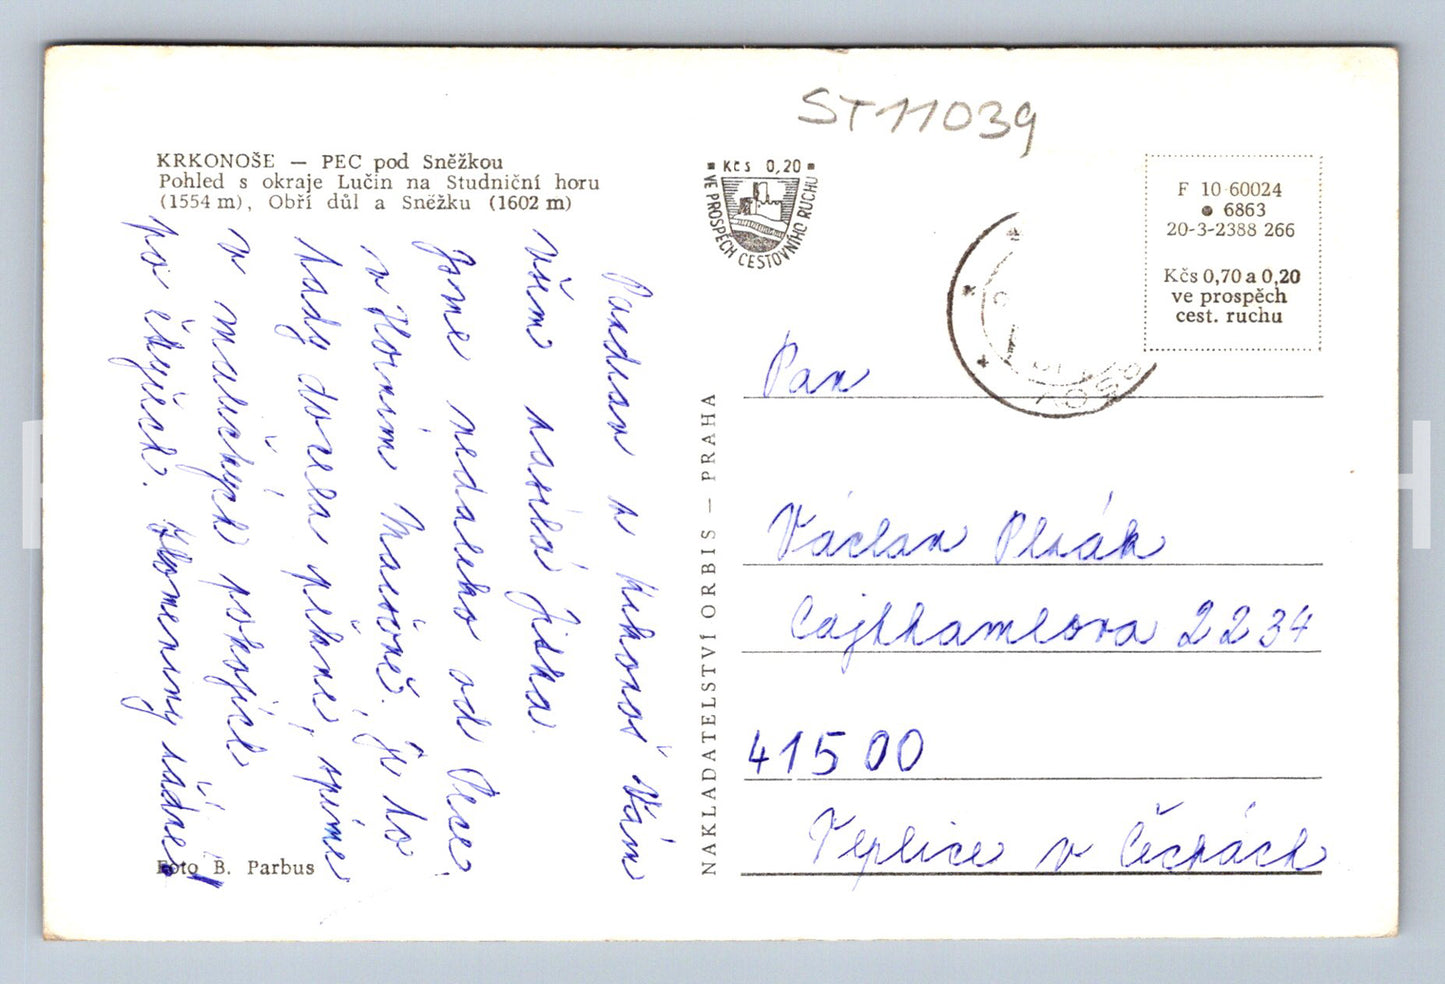 ST11039
KRKONOŠE — PEC pod Sněžkou
Pohled s okraje Lučin na Studniční horu
(1554 m), Obří důl a Sněžku (1602 m)
Pozdrav z Krkonoš Vám
všem zasílá Jitka.
Jsme nedaleko od Pece
v Horním Maršově. Je to
tady docela pěkné, spíme
v maličkých pokojích
po čtyřech. Zlomeniny žádné!
Foto B. Parbus
NAKLADATELSTVÍ ORBIS — PRAHA
Kčs 0,20
VE PROSPĚCH CESTOVNÍHO RUCHU
F 10 60024
6863
20-3-2388 266
Kčs 0,70 a 0,20
ve prospěch
cest. ruchu
Pan
Václav
2234
415 00
Teplice v Čechách